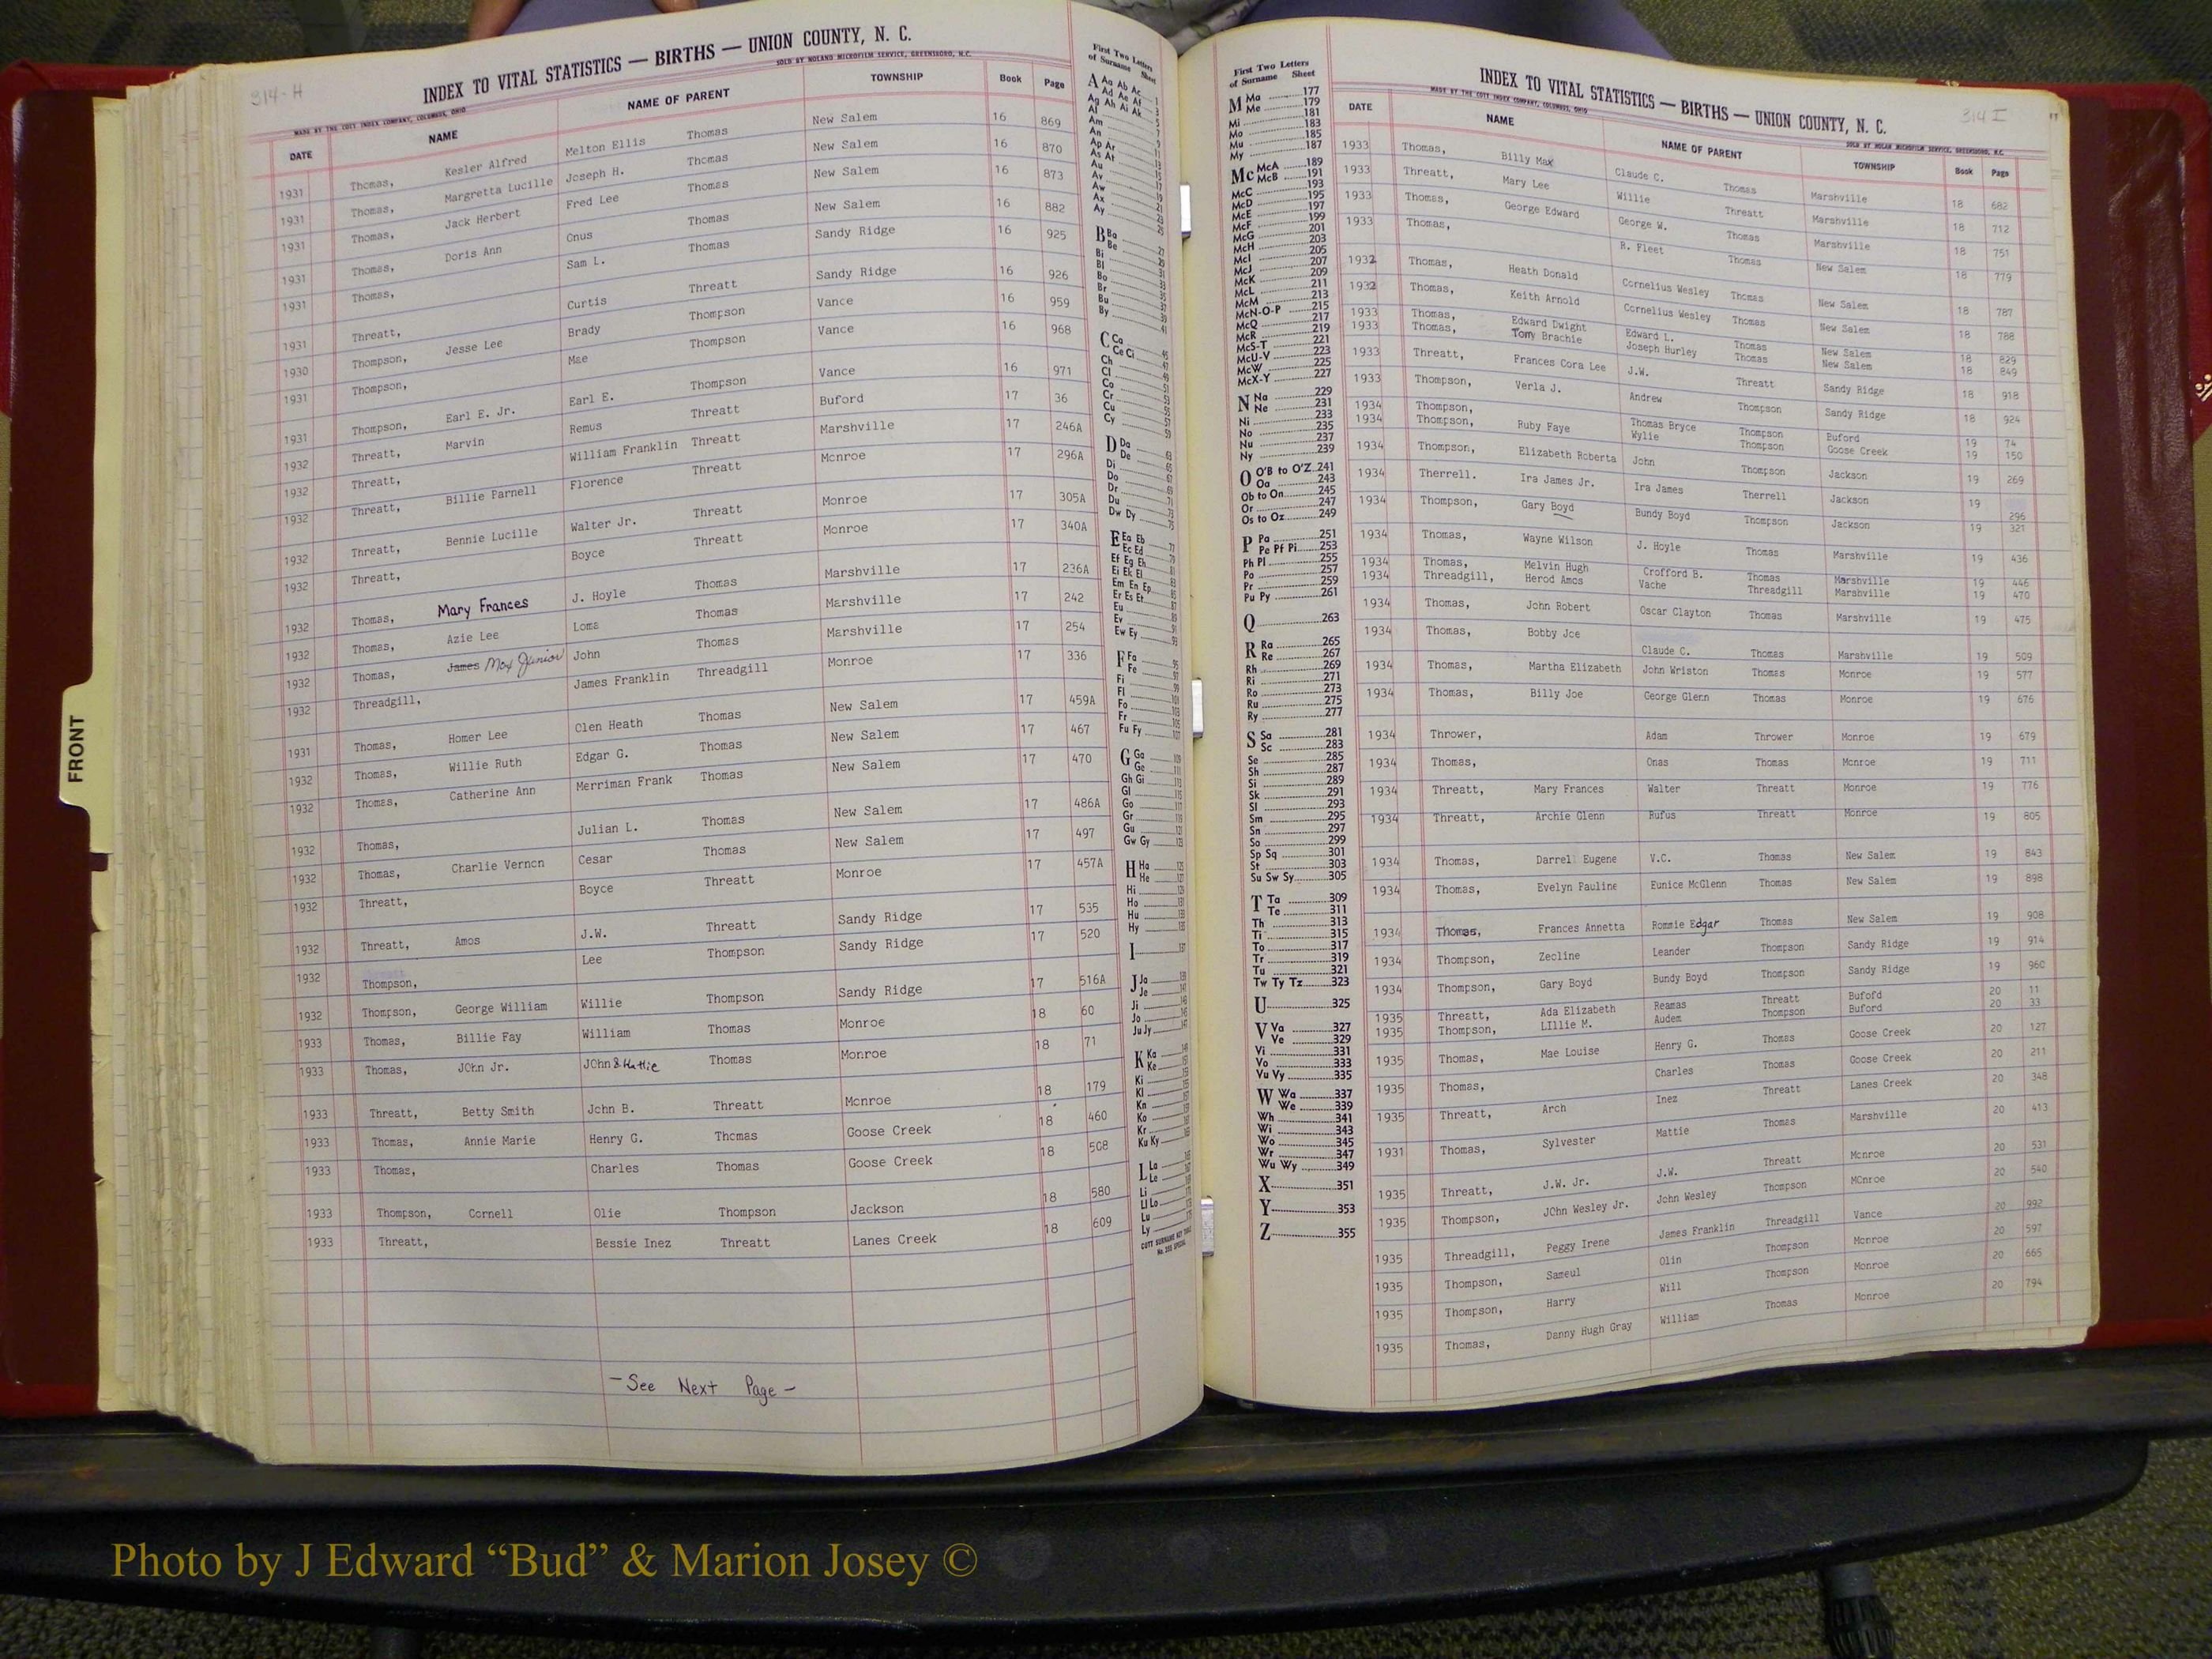 314-H
INDEX TO VITAL STATISTICS — BIRTHS — UNION COUNTY, N. C.
MADE BY THE COTT INDEX COMPANY, COLUMBUS, OHIO
SOLD BY NOLAND MICROFILM SERVICE, GREENSBORO, N.C.
DATE NAME NAME OF PARENT TOWNSHIP Book Page
1931 Thomas, Kesler Alfred Melton Ellis Thomas New Salem 16 869
1931 Thomas, Margretta Lucille Joseph H. Thomas New Salem 16 870
1931 Thomas, Jack Herbert Fred Lee Thomas New Salem 16 873
1931 Thomas, Doris Ann Onus Thomas New Salem 16 882
1931 Thomas, Sam L. Thomas Sandy Ridge 16 925
1931 Threatt, Curtis Threatt Sandy Ridge 16 926
1930 Thompson, Jesse Lee Brady Thompson Vance 16 959
1931 Thompson, Mae Thompson Vance 16 968
1931 Thompson, Earl E. Jr. Earl E. Thompson Vance 16 971
1932 Threatt, Marvin Remus Threatt Buford 17 36
1932 Threatt, William Franklin Threatt Marshville 17 246A
1932 Threatt, Billie Parnell Florence Threatt Monroe 17 296A
1932 Threatt, Bennie Lucille Walter Jr. Threatt Monroe 17 305A
1932 Threatt, Boyce Threatt Monroe 17 340A
1932 Thomas, Mary Frances J. Hoyle Thomas Marshville 17 236A
1932 Thomas, Azie Lee Loma Thomas Marshville 17 242
1932 Thomas, James Max Junior John Thomas Marshville 17 254
1932 Threadgill, James Franklin Threadgill Monroe 17 336
1931 Thomas, Homer Lee Clen Heath Thomas New Salem 17 459A
1932 Thomas, Willie Ruth Edgar G. Thomas New Salem 17 467
1932 Thomas, Catherine Ann Merriman Frank Thomas New Salem 17 470
1932 Thomas, Julian L. Thomas New Salem 17 486A
1932 Thomas, Charlie Vernon Cesar Thomas New Salem 17 497
1932 Threatt, Boyce Threatt Monroe 17 457A
1932 Threatt, Amos J.W. Threatt Sandy Ridge 17 535
1932 Thompson, Lee Thompson Sandy Ridge 17 520
1932 Thompson, George William Willie Thompson Sandy Ridge 17 516A
1933 Thomas, Billie Fay William Thomas Monroe 18 60
1933 Thomas, JOhn Jr. JOhn & Hattie Thomas Monroe 18 71
1933 Threatt, Betty Smith John B. Threatt Monroe 18 179
1933 Thomas, Annie Marie Henry G. Thomas Goose Creek 18 460
1933 Thomas, Charles Thomas Goose Creek 18 508
1933 Thompson, Cornell Olie Thompson Jackson 18 580
1933 Threatt, Bessie Inez Threatt Lanes Creek 18 609
-See Next Page-
FRONT
First Two Letters
of Surname Sheet
A Aa Ab Ac
Ad Ae Af
Ag Ah Ai Ak
Al
Am
An
Ap Ar
As At
Au
Av
Aw
Ax
Ay
B Ba
Be
Bi
Bl
Bo
Br
Bu
By
C Ca
Ce Ci
Ch
Cl
Co
Cr
Cu
Cy
D Da
De
Di
Do
Dr
Du
Dw Dy
E Ea Eb
Ec Ed
Ef Eg Eh
Ei Ek El
Em En Ep
Er Es Et
Eu
Ev
Ew Ey
F Fa
Fe
Fi
Fl
Fo
Fr
Fu Fy
G Ga
Ge
Gh Gi
Gl
Go
Gr
Gu
Gw Gy
H Ha
He
Hi
Ho
Hu
Hy
I
J Ja
Je
Ji
Jo
Ju Jy
K Ka
Ke
Ki
Kl
Kn
Ko
Kr
Ku Ky
L La
Le
Li
Ll Lo
Lu
Ly
First Two Letters
of Surname Sheet
M Ma 177
Me 179
Mi 181
Mo 183
Mu 185
My 187
Mc McA 189
McB 191
McC 193
McD 195
McE 197
McF 199
McG 201
McH 203
McI 205
McJ 207
McK 209
McL 211
McM 213
McN-O-P 215
McQ 217
McR 219
McS-T 221
McU-V 223
McW 225
McX-Y 227
N Na 229
Ne 231
Ni 233
No 235
Nu 237
Ny 239
O O'B to O'Z 241
Oa 243
Ob to On 245
Or 247
Os to Oz 249
P Pa 251
Pe Pf Pi 253
Ph Pl 255
Po 257
Pr 259
Pu Py 261
Q 263
R Ra 265
Re 267
Rh 269
Ri 271
Ro 273
Ru 275
Ry 277
S Sa 281
Sc 283
Se 285
Sh 287
Si 289
Sk 291
Sl 293
Sm 295
Sn 297
So 299
Sp Sq 301
St 303
Su Sw Sy 305
T Ta 309
Te 311
Th 313
Ti 315
To 317
Tr 319
Tu 321
Tw Ty Tz 323
U 325
V Va 327
Ve 329
Vi 331
Vo 333
Vu Vy 335
W Wa 337
We 339
Wh 341
Wi 343
Wo 345
Wr 347
Wu Wy 349
X 351
Y 353
Z 355
314 I
INDEX TO VITAL STATISTICS — BIRTHS — UNION COUNTY, N. C.
MADE BY THE COTT INDEX COMPANY, COLUMBUS, OHIO
DATE NAME NAME OF PARENT TOWNSHIP Book Page
1933 Thomas, Billy Max Claude C. Thomas Marshville 18 682
1933 Threatt, Mary Lee Willie Threatt Marshville 18 712
1933 Thomas, George Edward George W. Thomas Marshville 18 751
1933 Thomas, R. Fleet Thomas New Salem 18 779
1932 Thomas, Heath Donald Cornelius Wesley Thomas New Salem 18 787
1932 Thomas, Keith Arnold Cornelius Wesley Thomas New Salem 18 788
1933 Thomas, Edward Dwight Edward L. Thomas New Salem 18 829
1933 Thomas, Tom Brachie Joseph Hurley Thomas New Salem 18 849
1933 Threatt, Frances Cora Lee J.W. Threatt Sandy Ridge 18 918
1933 Thompson, Verla J. Andrew Thompson Sandy Ridge 18 924
1934 Thompson, Thomas Bryce Thompson Buford 19 74
1934 Thompson, Ruby Faye Wylie Thompson Goose Creek 19 150
1934 Thompson, Elizabeth Roberta John Thompson Jackson 19 269
1934 Therrell. Ira James Jr. Ira James Therrell Jackson 19 296
1934 Thompson, Gary Boyd Bundy Boyd Thompson Jackson 19 321
1934 Thomas, Wayne Wilson J. Hoyle Thomas Marshville 19 436
1934 Thomas, Melvin Hugh Crofford B. Thomas Marshville 19 446
1934 Threadgill, Herod Amos Vache Threadgill Marshville 19 470
1934 Thomas, John Robert Oscar Clayton Thomas Marshville 19 475
1934 Thomas, Bobby Joe Claude C. Thomas Marshville 19 509
1934 Thomas, Martha Elizabeth John Wriston Thomas Monroe 19 577
1934 Thomas, Billy Joe George Glenn Thomas Monroe 19 676
1934 Thrower, Adam Thrower Monroe 19 679
1934 Thomas, Onas Thomas Monroe 19 711
1934 Threatt, Mary Frances Walter Threatt Monroe 19 776
1934 Threatt, Archie Glenn Rufus Threatt Monroe 19 805
1934 Thomas, Darrel Eugene V.C. Thomas New Salem 19 843
1934 Thomas, Evelyn Pauline Eunice McGlenn Thomas New Salem 19 898
1934 Thomas, Frances Annetta Rommie Edgar Thomas New Salem 19 908
1934 Thompson, Zecline Leander Thompson Sandy Ridge 19 914
1934 Thompson, Gary Boyd Bundy Boyd Thompson Sandy Ridge 19 960
1935 Threatt, Ada Elizabeth Reamas Threatt Bufofd 20 11
1935 Thompson, LIllie M. Audem Thompson Buford 20 33
1935 Thomas, Mae Louise Henry G. Thomas Goose Creek 20 127
1935 Thomas, Charles Thomas Goose Creek 20 211
1935 Threatt, Arch Inez Threatt Lanes Creek 20 348
1931 Thomas, Sylvester Mattie Thomas Marshville 20 413
1935 Threatt, J.W. Jr. J.W. Threatt Monroe 20 531
1935 Thompson, JOhn Wesley Jr. John Wesley Thompson MOnroe 20 540
1935 Threadgill, Peggy Irene James Franklin Threadgill Vance 20 992
1935 Thompson, Sameul Olin Thompson Monroe 20 597
1935 Thompson, Harry Will Thompson Monroe 20 665
1935 Thomas, Danny Hugh Gray William Thomas Monroe 20 794
Photo by J Edward “Bud” & Marion Josey ©